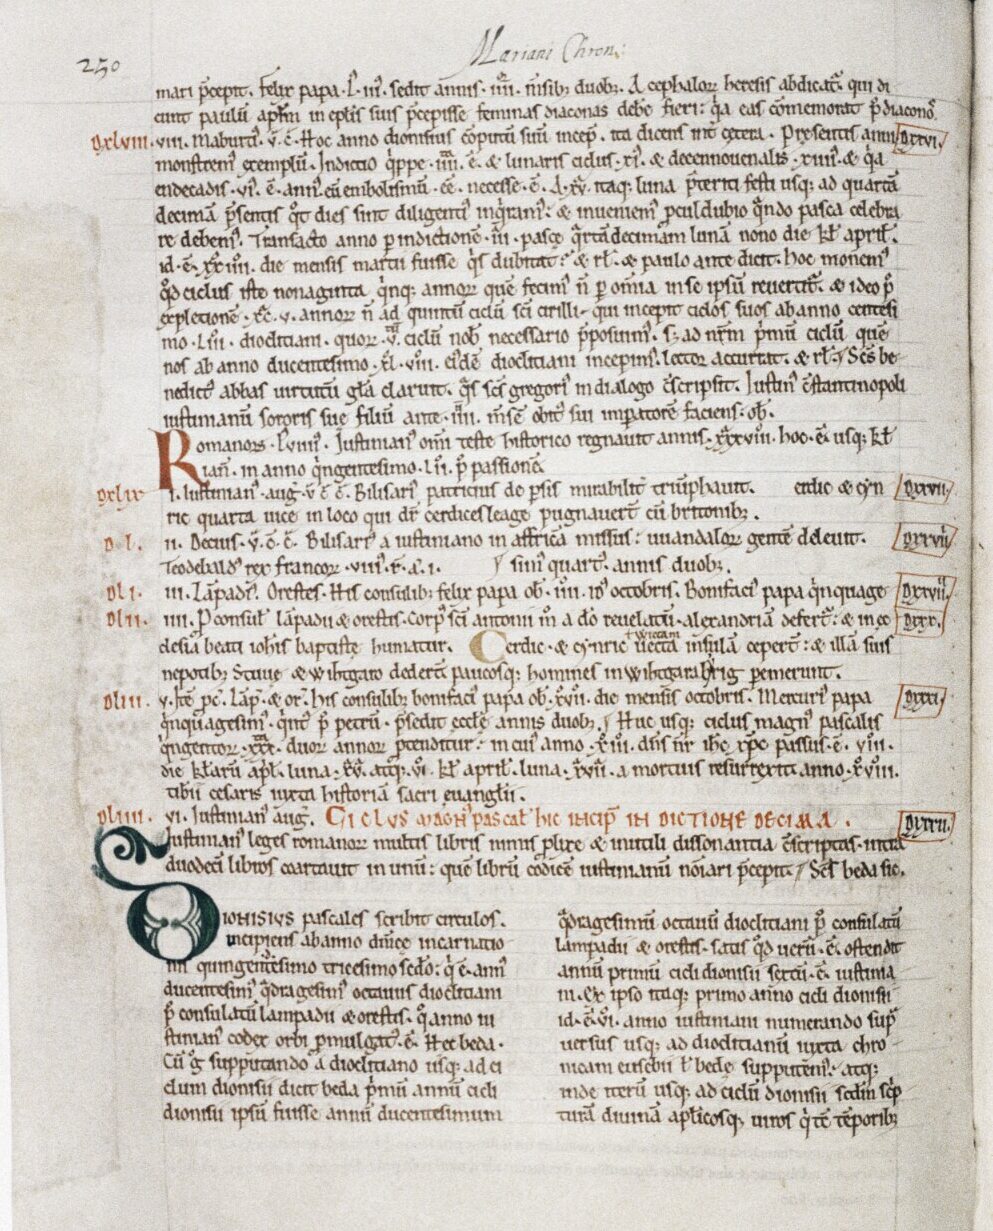 250
Mariani Chron:
mari p̄cepit. Felix papa. L. iii. sedit annis. iiii. m̄sib; duob;. Acephaloꝝ heresis abdicat̄. qui di
cunt paulū apl̄m in epl̄is suis p̄cepisse feminas diaconas debe fieri: q̄a eas cōmemorat p̄ diaconoˢ.
dxlviii. viii. Maburti. v̄. c̄. Hoc anno dionisius cōputū suū incep̄. ita dicens int̄ cetera. Presentis anni dxxvi.
monstrem⁹ exemplū. Indictio q̄ppe. iiii. ē. & lunaris ciclus. xi. & decennouenalis. xiiii. & q̄a
endecadis. vi. ē. ann⁹ eū embolismū. ēē. necesse. ē. A. xv. itaq; luna p̄teriti festi usq; ad quartā
decimā p̄sentis q̄t dies sint diligent̄ inq̄ram⁹: & inueniem⁹ pculdubio q̄ndo pasca celebra
re debem⁹. Transacto anno p indictionē. iii. pasce q̄rtādecimam lunā nono die kl̄ april̄.
id. ē. xxiiii. die mensis martii fuisse q̄s dubitat: & rl̄. & paulo ante dicit. hoc monem⁹
q̄d ciclus iste nonaginta q̄nq; annoꝝ quē fecim⁹ n̄ p om̄ia in se ipsū reuertit̄. & ideo p̄
expletionē. xc. v. annoꝝ n̄ ad quintū ciclū sc̄i cirilli. qui incepit ciclos suos ab anno centesi
mo. liii. diocl̄itiani. quoꝝ. v. ciclū nob̄ necessario p̄posuim⁹. s; ad nr̄m p̄mū ciclū quē
nos ab anno ducentesimo. xl. viii. ei⁹dē dioclitiani incepim⁹. lector accurrat. & rl̄. Sc̄s be
nedict⁹ abbas uirtutū gl̄a claruit. q̄s sc̄s gregori⁹ in dialogo c̄scripsit. Iustin⁹ c̄stantinopoli
iustinianū sororis sue filiū ante. iiii. m̄sē obit⁹ sui imperatorē faciens. ob̄.
Romanoꝝ. l. viiii. Iustinian⁹ om̄i teste historico regnauit annis. xxxviii. hoc. ē. usq; kl̄
ian̄. in anno q̄ngentesimo. l. ii. p̄ passionē.
dxlix i. Iustinian⁹. auḡ. v̄. c̄. c̄. Bilisari⁹ patricius de p̄sis mirabilit̄ triūphauit. cerdic & cyn dxxvii.
ric quarta uice in loco qui dr̄ cerdicesleage pugnauer̄t cū britonib;.
dl. ii. Decius. v̄. c̄. c̄. Bilisari⁹ a iustiniano in affrica missus: uuandaloꝝ gentē deleuit. dxxviii
Teodebald⁹ rex francoꝝ. viii⁹. r̄. a. i. sim⁹ quart⁹. annis duob;.
dli. iii. Lāpadi⁹. Orestes. His consulib; felix papa ob̄. iiii. id⁹ octobris. Bonifaci⁹ papa q̄nquage dxxviiii.
dlii. iiii. P consul⁹ lāpadii & orestis. Corp⁹ sc̄i antonii m̄ a dō reuelatū. alexandriā defert̄: & in ec dxxx.
clesia beati ioh̄is baptiste humatur. Cerdic. & cynric uecta insulā ceper̄t: & illā suis
+wictam
nepotib; Stuue & wihtgaro deder̄t paucosq; homines in wihtgarabrig pemerunt.
dliii. v. Itē pc̄. Lāp̄. & or̄. his consulib; bonifaci⁹ papa ob̄. xvii. die mensis octobris. Mercuri⁹ papa dxxxi.
q̄nquagesim⁹. q̄nt⁹ p̄ petrū. p̄sedit eccl̄e annis duob;. Huc usq; ciclus magn⁹ pascalis
q̄ngentoꝝ. xxx. duoꝝ annoꝝ p̄tenditur: in cui⁹ anno. xiii. dn̄s nr̄ ih̄c xp̄c passus. ē. viii.
die kl̄aru apl̄. luna. xv. atq;. vi. kl̄ april̄. luna. xvii. a mortuis resurrexit anno. xviii.
tib̄ii cesaris iuxta historiā sacri euanglii.
dliiii. vi. Iustinian⁹ auḡ. Ciclus magn⁹ pascal̄ hic incip̄ indictione decima. dxxxii.
Iustinian⁹ leges romanoꝝ multis libris nimis plixe & inutili dissonantia c̄scriptas. intra
duodecī libros coartauit in unū: quē librū codicē iustinianū no̅iari p̄cepit. Sc̄s beda sic.
Dionisius pascales scribit circulos.
incipiens ab anno dn̄ice incarnatio
nis quingentesimo tricesimo sēdo: q̄. ē. ann⁹
ducentesim⁹ q̄dragesim⁹ octauus dioclitiani
p̄ consulatū lampadii & orestis. q̄ anno iu
stinian⁹ codex orbi pmulgat̄. ē. Hec beda.
Cū g̊ supputando a dioclitiano usq; ad ci
clum dionisii dicit beda p̄mū annū cicli
dionisii ipsū fuisse annū ducentesimum
q̄dragesimū octauū dioclitiani p̄ consulatū
lampadii & orestis. satis q̄d uerū. ē. ostendit
annū primū cicli dionisii sextū. ē. iustinia
ni. Ex ipso itaq; primo anno cicli dionisii
id. ē. vi. anno iustiniani numerando sup̄
uersus usq; ad dioclitianū iuxta chro
nicam eusebii l̄ bedę supputem⁹. atq;
inde iterū usq; ad ciclū dionisii sc̄dm sc̄p
turā diuinā apl̄icosq; uiros q̄rē tēporib;